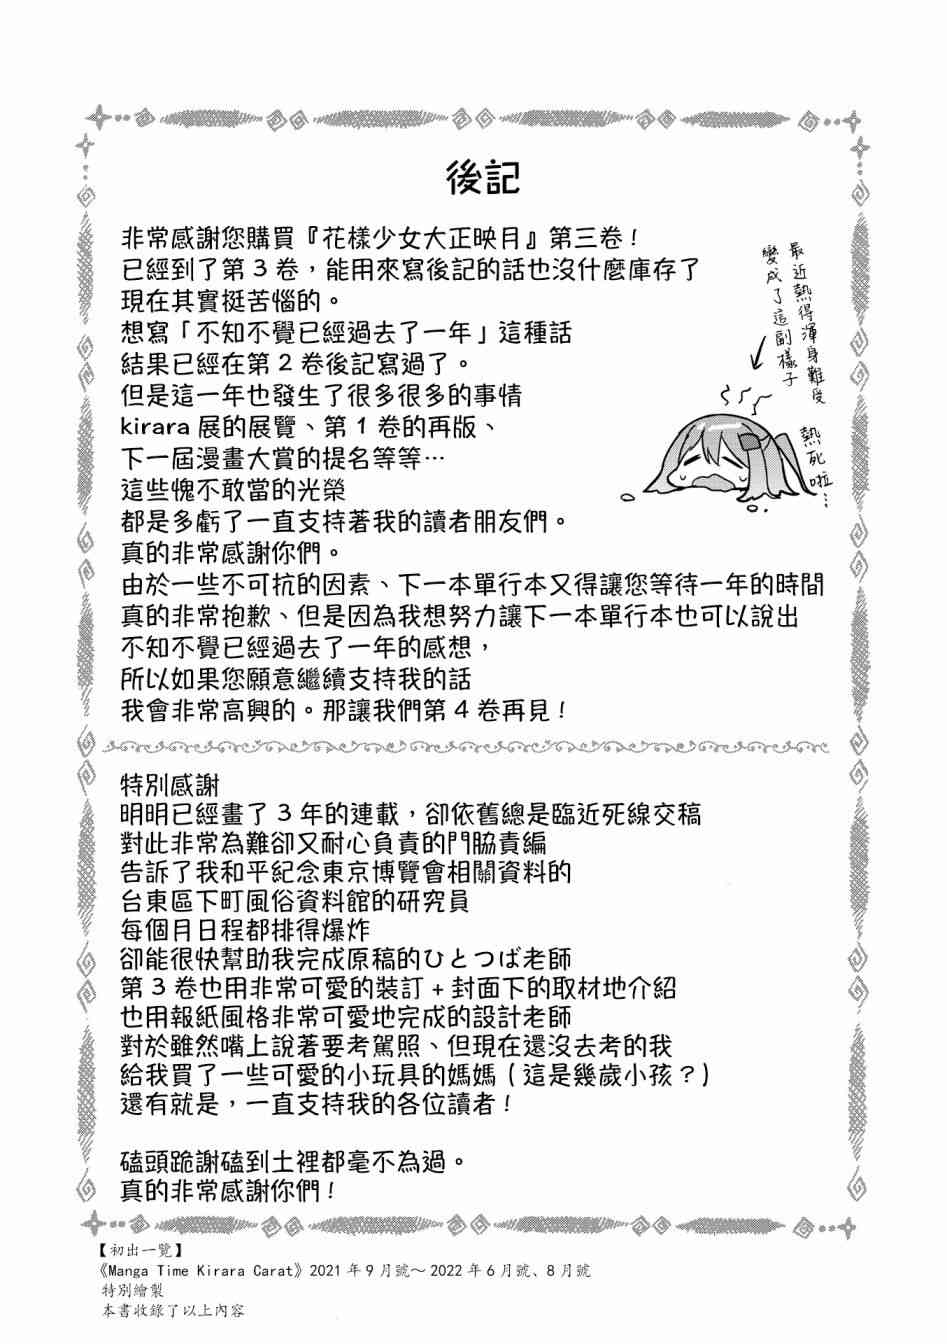 後記
非常感謝您購買『花樣少女大正映月』第三卷!
已經到了第3卷,能用來寫後記的話也沒什麼庫存了
現在其實挺苦惱的。
想寫「不知不覺已經過去了一年」這種話
結果已經在第2卷後記寫過了。
但是這一年也發生了很多很多的事情
kirara展的展覽、第1卷的再版、
下一屆漫畫大賞的提名等等…
這些愧不敢當的光榮
都是多虧了一直支持著我的讀者朋友們。
真的非常感謝你們。
由於一些不可抗的因素、下一本單行本又得讓您等待一年的時間
真的非常抱歉、但是因為我想努力讓下一本單行本也可以說出
不知不覺已經過去了一年的感想,
所以如果您願意繼續支持我的話
我會非常高興的。那讓我們第4卷再見!
最近熱得渾身難受
變成了這副樣子
熱死啦…
特別感謝
明明已經畫了3年的連載,卻依舊總是臨近死線交稿
對此非常為難卻又耐心負責的門脇責編
告訴了我和平紀念東京博覽會相關資料的
台東區下町風俗資料館的研究員
每個月日程都排得爆炸
卻能很快幫助我完成原稿的ひとつば老師
第3卷也用非常可愛的裝訂+封面下的取材地介紹
也用報紙風格非常可愛地完成的設計老師
對於雖然嘴上說著要考駕照、但現在還沒去考的我
給我買了一些可愛的小玩具的媽媽(這是幾歲小孩?)
還有就是,一直支持我的各位讀者!
磕頭跪謝磕到土裡都毫不為過。
真的非常感謝你們!
【初出一覽】
《Manga Time Kirara Carat》2021年9月號～2022年6月號、8月號
特別繪製
本書收錄了以上內容